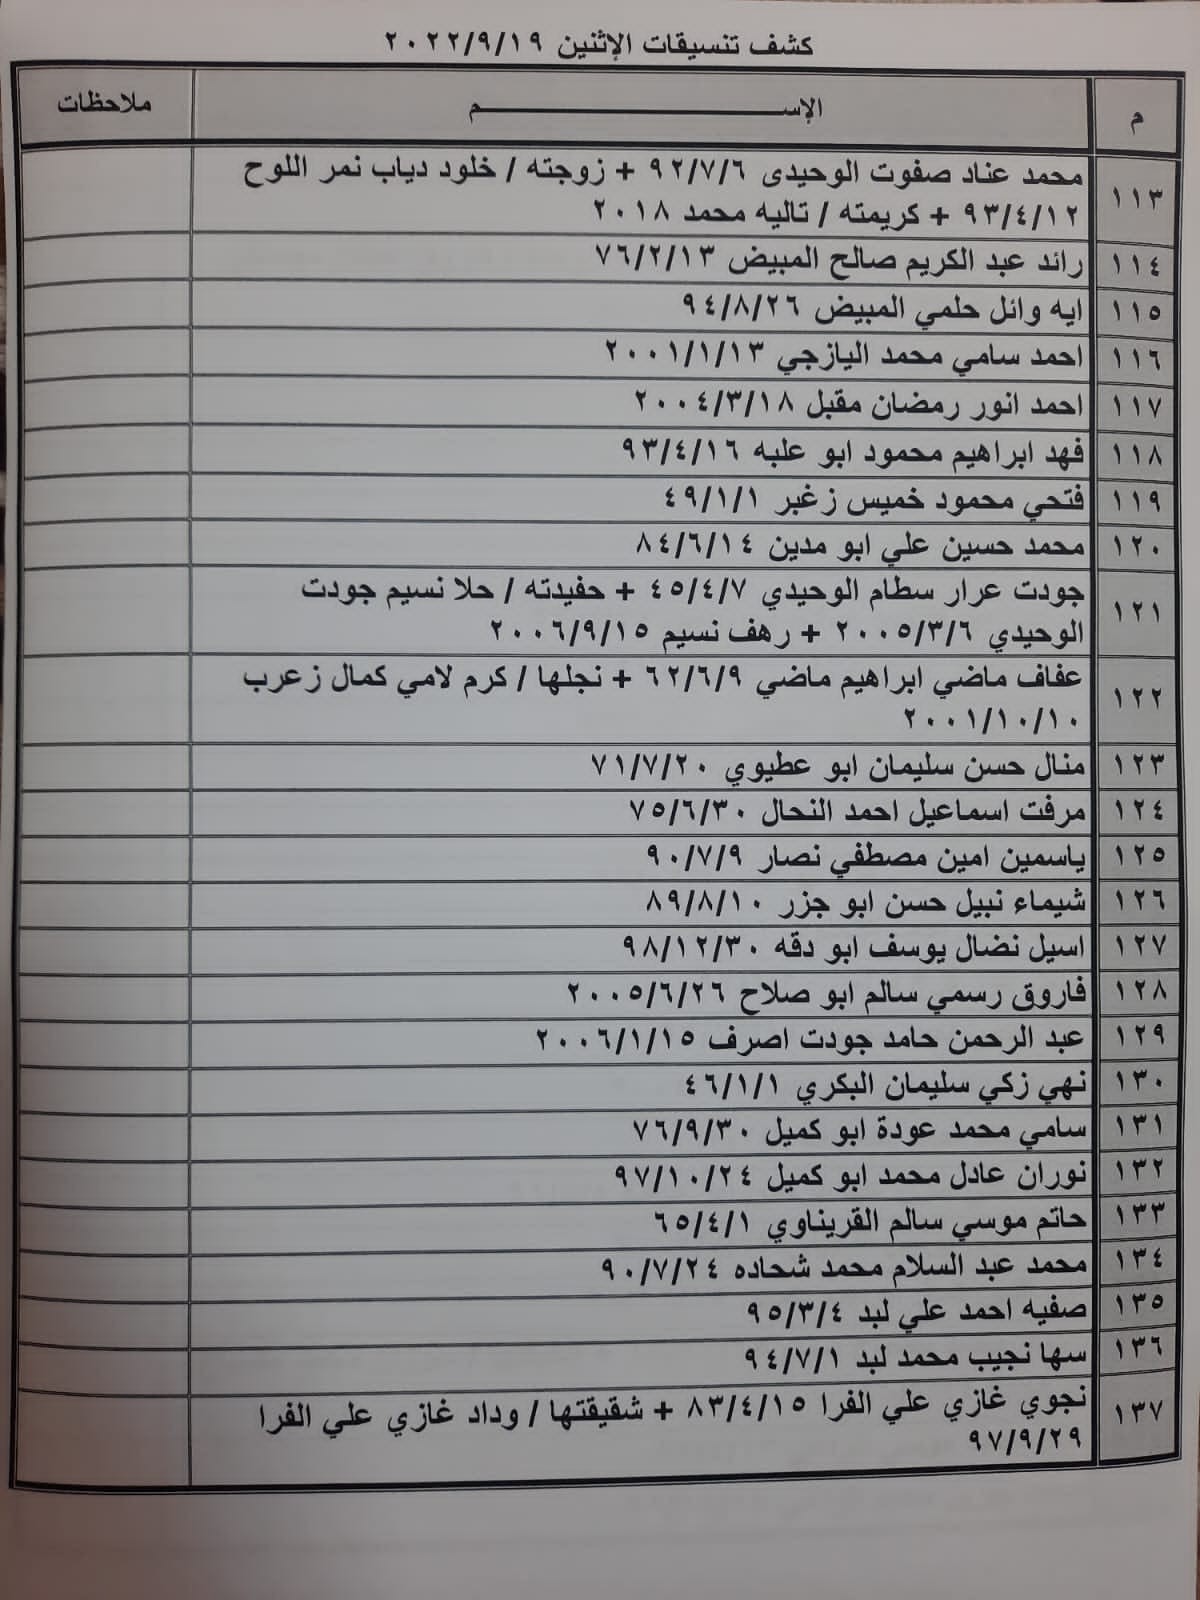 كشف تنسيقات الإثنين ٢٠٢٢/٩/١٩
م الإســـــــــــــــم ملاحظات
١١٣ محمد عناد صفوت الوحيدى ٩٢/٧/٦ + زوجته / خلود دياب نمر اللوح
٩٣/٤/١٢ + كريمته / تاليه محمد ٢٠١٨
١١٤ رائد عبد الكريم صالح المبيض ٧٦/٢/١٣
١١٥ ايه وائل حلمي المبيض ٩٤/٨/٢٦
١١٦ احمد سامي محمد اليازجي ٢٠٠١/١/١٣
١١٧ احمد انور رمضان مقبل ٢٠٠٤/٣/١٨
١١٨ فهد ابراهيم محمود ابو علبه ٩٣/٤/١٦
١١٩ فتحي محمود خميس زغبر ٤٩/١/١
١٢٠ محمد حسين علي ابو مدين ٨٤/٦/١٤
١٢١ جودت عرار سطام الوحيدي ٤٥/٤/٧ + حفيدته / حلا نسيم جودت
الوحيدي ٢٠٠٥/٣/٦ + رهف نسيم ٢٠٠٦/٩/١٥
١٢٢ عفاف ماضي ابراهيم ماضي ٦٢/٦/٩ + نجلها / كرم لامي كمال زعرب
٢٠٠١/١٠/١٠
١٢٣ منال حسن سليمان ابو عطيوي ٧١/٧/٢٠
١٢٤ مرفت اسماعيل احمد النحال ٧٥/٦/٣٠
١٢٥ ياسمين امين مصطفي نصار ٩٠/٧/٩
١٢٦ شيماء نبيل حسن ابو جزر ٨٩/٨/١٠
١٢٧ اسيل نضال يوسف ابو دقه ٩٨/١٢/٣٠
١٢٨ فاروق رسمي سالم ابو صلاح ٢٠٠٥/٦/٢٦
١٢٩ عبد الرحمن حامد جودت اصرف ٢٠٠٦/١/١٥
١٣٠ نهي زكي سليمان البكري ٤٦/١/١
١٣١ سامي محمد عودة ابو كميل ٧٦/٩/٣٠
١٣٢ نوران عادل محمد ابو كميل ٩٧/١٠/٢٤
١٣٣ حاتم موسي سالم القريناوي ٦٥/٤/١
١٣٤ محمد عبد السلام محمد شحاده ٩٠/٧/٢٤
١٣٥ صفيه احمد علي لبد ٩٥/٣/٤
١٣٦ سها نجيب محمد لبد ٩٤/٧/١
١٣٧ نجوي غازي علي الفرا ٨٣/٤/١٥ + شقيقتها / وداد غازي علي الفرا
٩٧/٩/٢٩